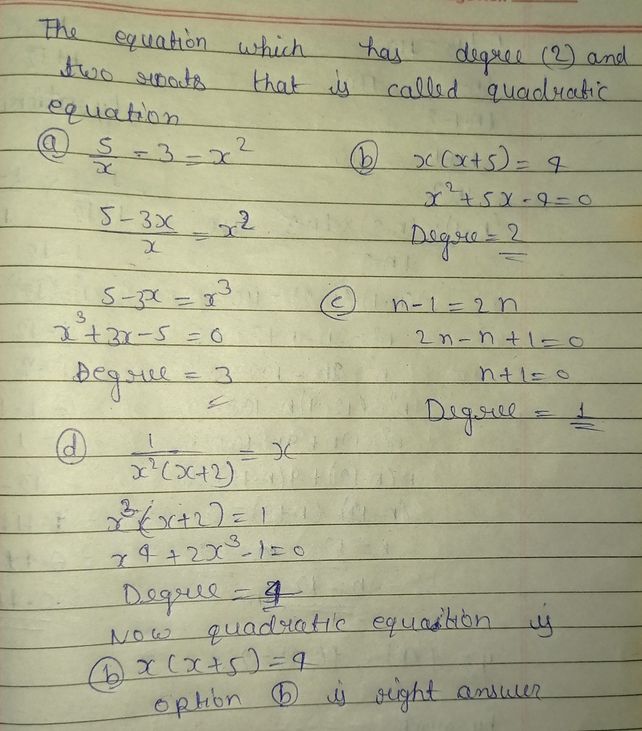 The equation which has degree (2) and
two roots that is called quadratic
equation
ⓐ 5/x - 3 = x²
(5-3x)/x = x²
5-3x = x³
x³+3x-5 = 0
Degree = 3
ⓑ x(x+5) = 4
x²+5x-4=0
Degree = 2
ⓒ n-1 = 2n
2n-n+1=0
n+1=0
Degree = 1
ⓓ 1/(x²(x+2)) = x
x³(x+2) = 1
x4+2x³-1=0
Degree = 4
Now quadratic equation is
ⓑ x(x+5)=4
option ⓑ is right answer